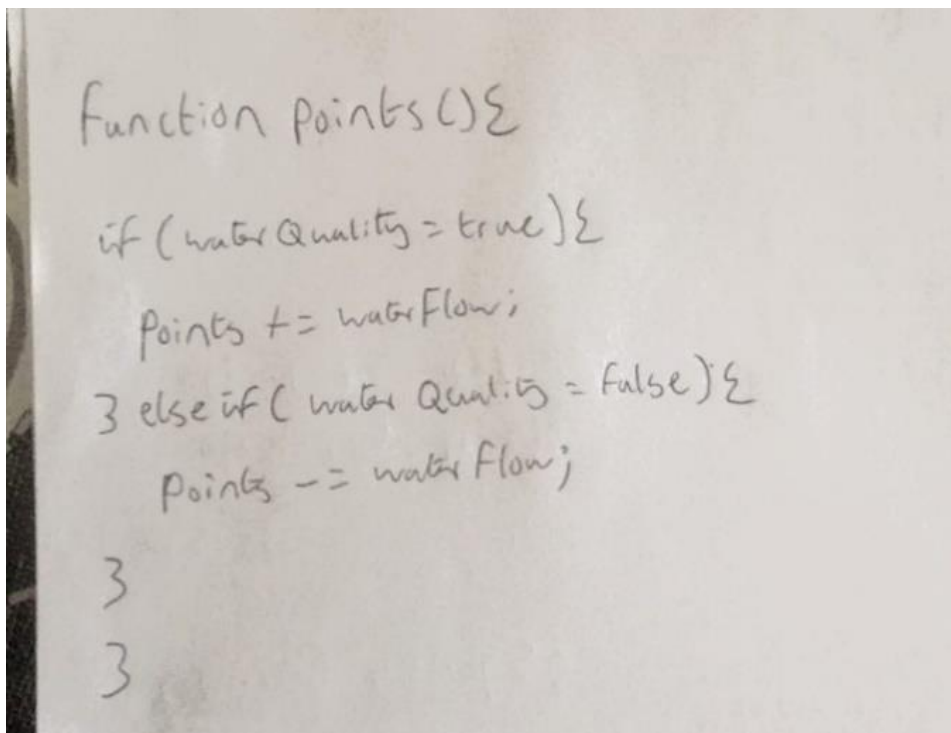 function points(){
if (waterQuality = true){
points += waterFlow;
} else if ( water Quality = False){
points -= water flow;
}
}